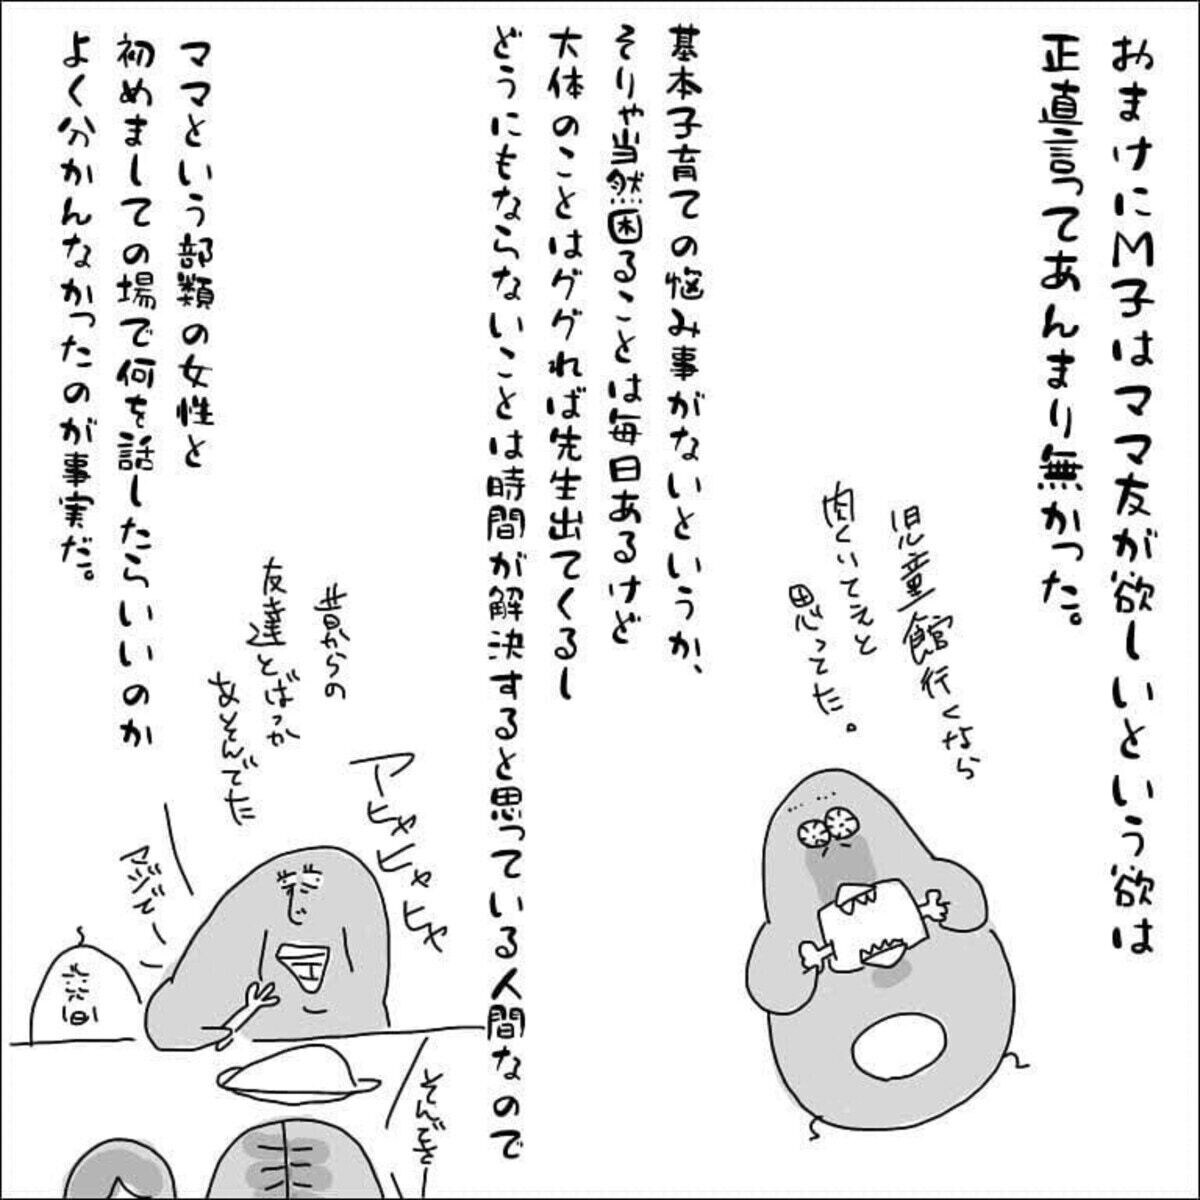 おまけにM子はママ友が欲しいという欲は
正直言ってあんまり無かった。
児童館行くなら
肉くいてえと
思ってた。
基本子育ての悩み事がないというか、
そりゃ当然困ることは毎日あるけど
大体のことはググれば先生出てくるし
どうにもならないことは時間が解決すると思っている人間なので
アヒャヒャヒャ
昔からの
友達とばっか
あそんでた
マジでー
そんでさー
ママという部類の女性と
初めましての場で何を話したらいいのか
よく分かんなかったのが事実だ。